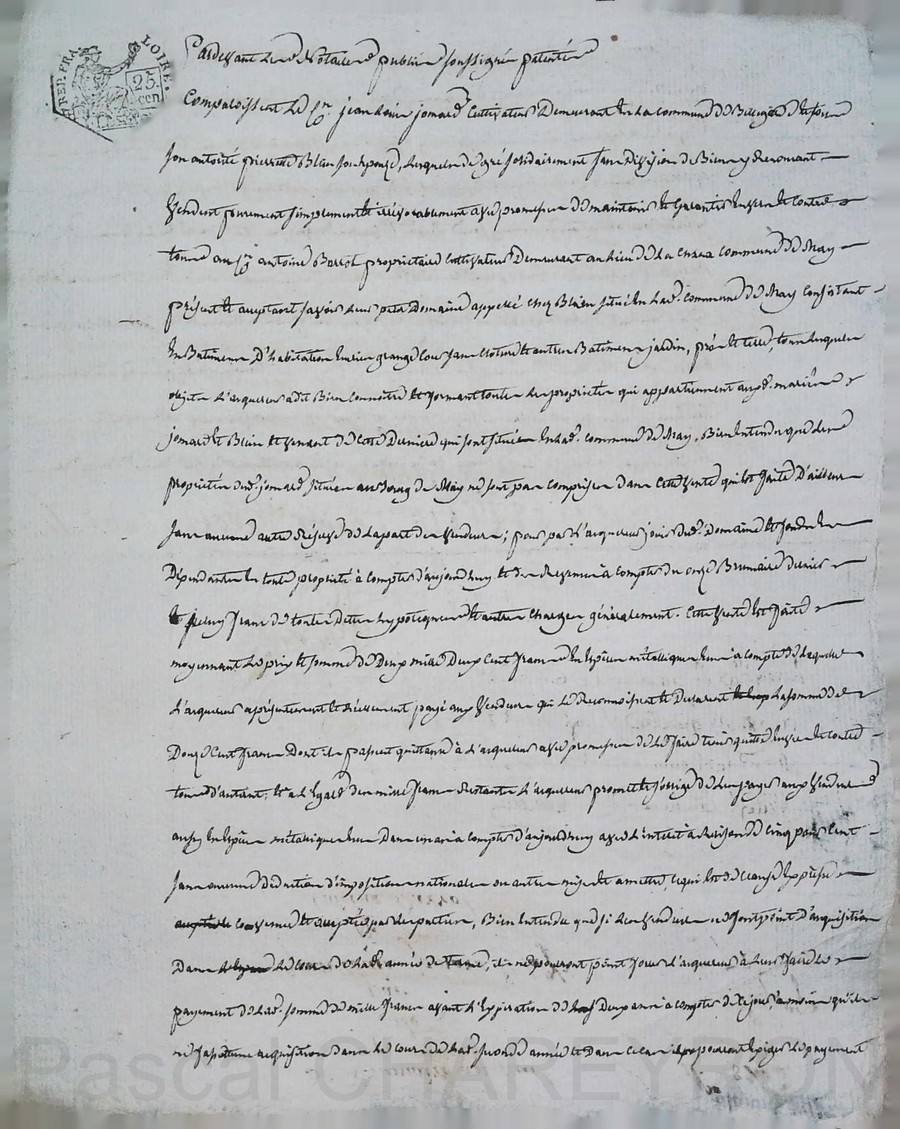 REP. FRA. LOIRE.
25 cen
Pardevant le Notaire public soussigné patenté
Comparoissent le Cn. jean jomard Cultivateur Demeurant En la commune de et sous
son autorité pierrette Blein son Epouse, lesquels de gré solidairement sans Division de Biens y Renonçant
Vendent purement simplement et irrévocablement avec promesse de maintenir et Garantir Envers et Contre
tous au Cn. antoine proprietaire Cultivateur Demeurant au lieu de la commune de May
présent et acceptant savoir leur petit Domaine appellé chez Blein situé En lad. commune de May Consistant
En Batiments D'habitation Ecurie grange Cour sans cloture et autres Batiments jardin, prés et terres, tous lesquels
objets L'acquereur a dit Bien Connoitre et formant toutes les proprietés qui appartiennent auxd. mariés
jomard et Blein et venant de cette Derniere qui sont situées En lad. commune de May, Bien Entendu que les
proprietés dud. jomard situées au Bourg de May ne sont pas comprises dans cette Vente qui est faite D'ailleurs
sans aucune autre Réserve de la part des Vendeurs; pour par l'acquereur jouir dud. Domaine et fonds En
Dépendants En toute propriété à compter d'aujourd'huy et des Revenus à compter du onze Brumaire dernier
franc de toutes Dettes hypoteques et autres Charges généralement. Cette Vente Est faite
moyennant le prix et somme de Deux mille Deux Cent francs En Espèces métalliques à compte de laquelle
l'acquereur a présentement et réellement payé aux Vendeurs qui le Reconnoissent et Declarent la somme de
Douze Cent francs Dont ils passent quittance à l'acquereur avec promesse de le faire tenir quitte Envers et Contre
tous d'autant. Et à l'Egard des mille francs Restants L'acquereur promet et s'oblige de les payer aux Vendeurs
aussy En Espèces métalliques Dans à compter d'aujourd'huy avec l'interet à Raison de cinq pour Cent
sans aucune déduction d'imposition nationale ou autre mise et a mettre, ce qui est de clause Expresse
convenue et acceptée par les parties, Bien Entendu que si les Vendeurs ne font point d'acquisition
Dans le cours de lad. année ils ne pourront point forcer l'acquereur à leur faire le
payement de lad. somme de mille francs avant l'Expiration de Deux ans à compter de ce jour, à moins qu'ils
ne fassent une acquisition dans le cours de lad. seconde année et Dans ce cas ils pourront Exiger le payement
Pascal CHAREYRON